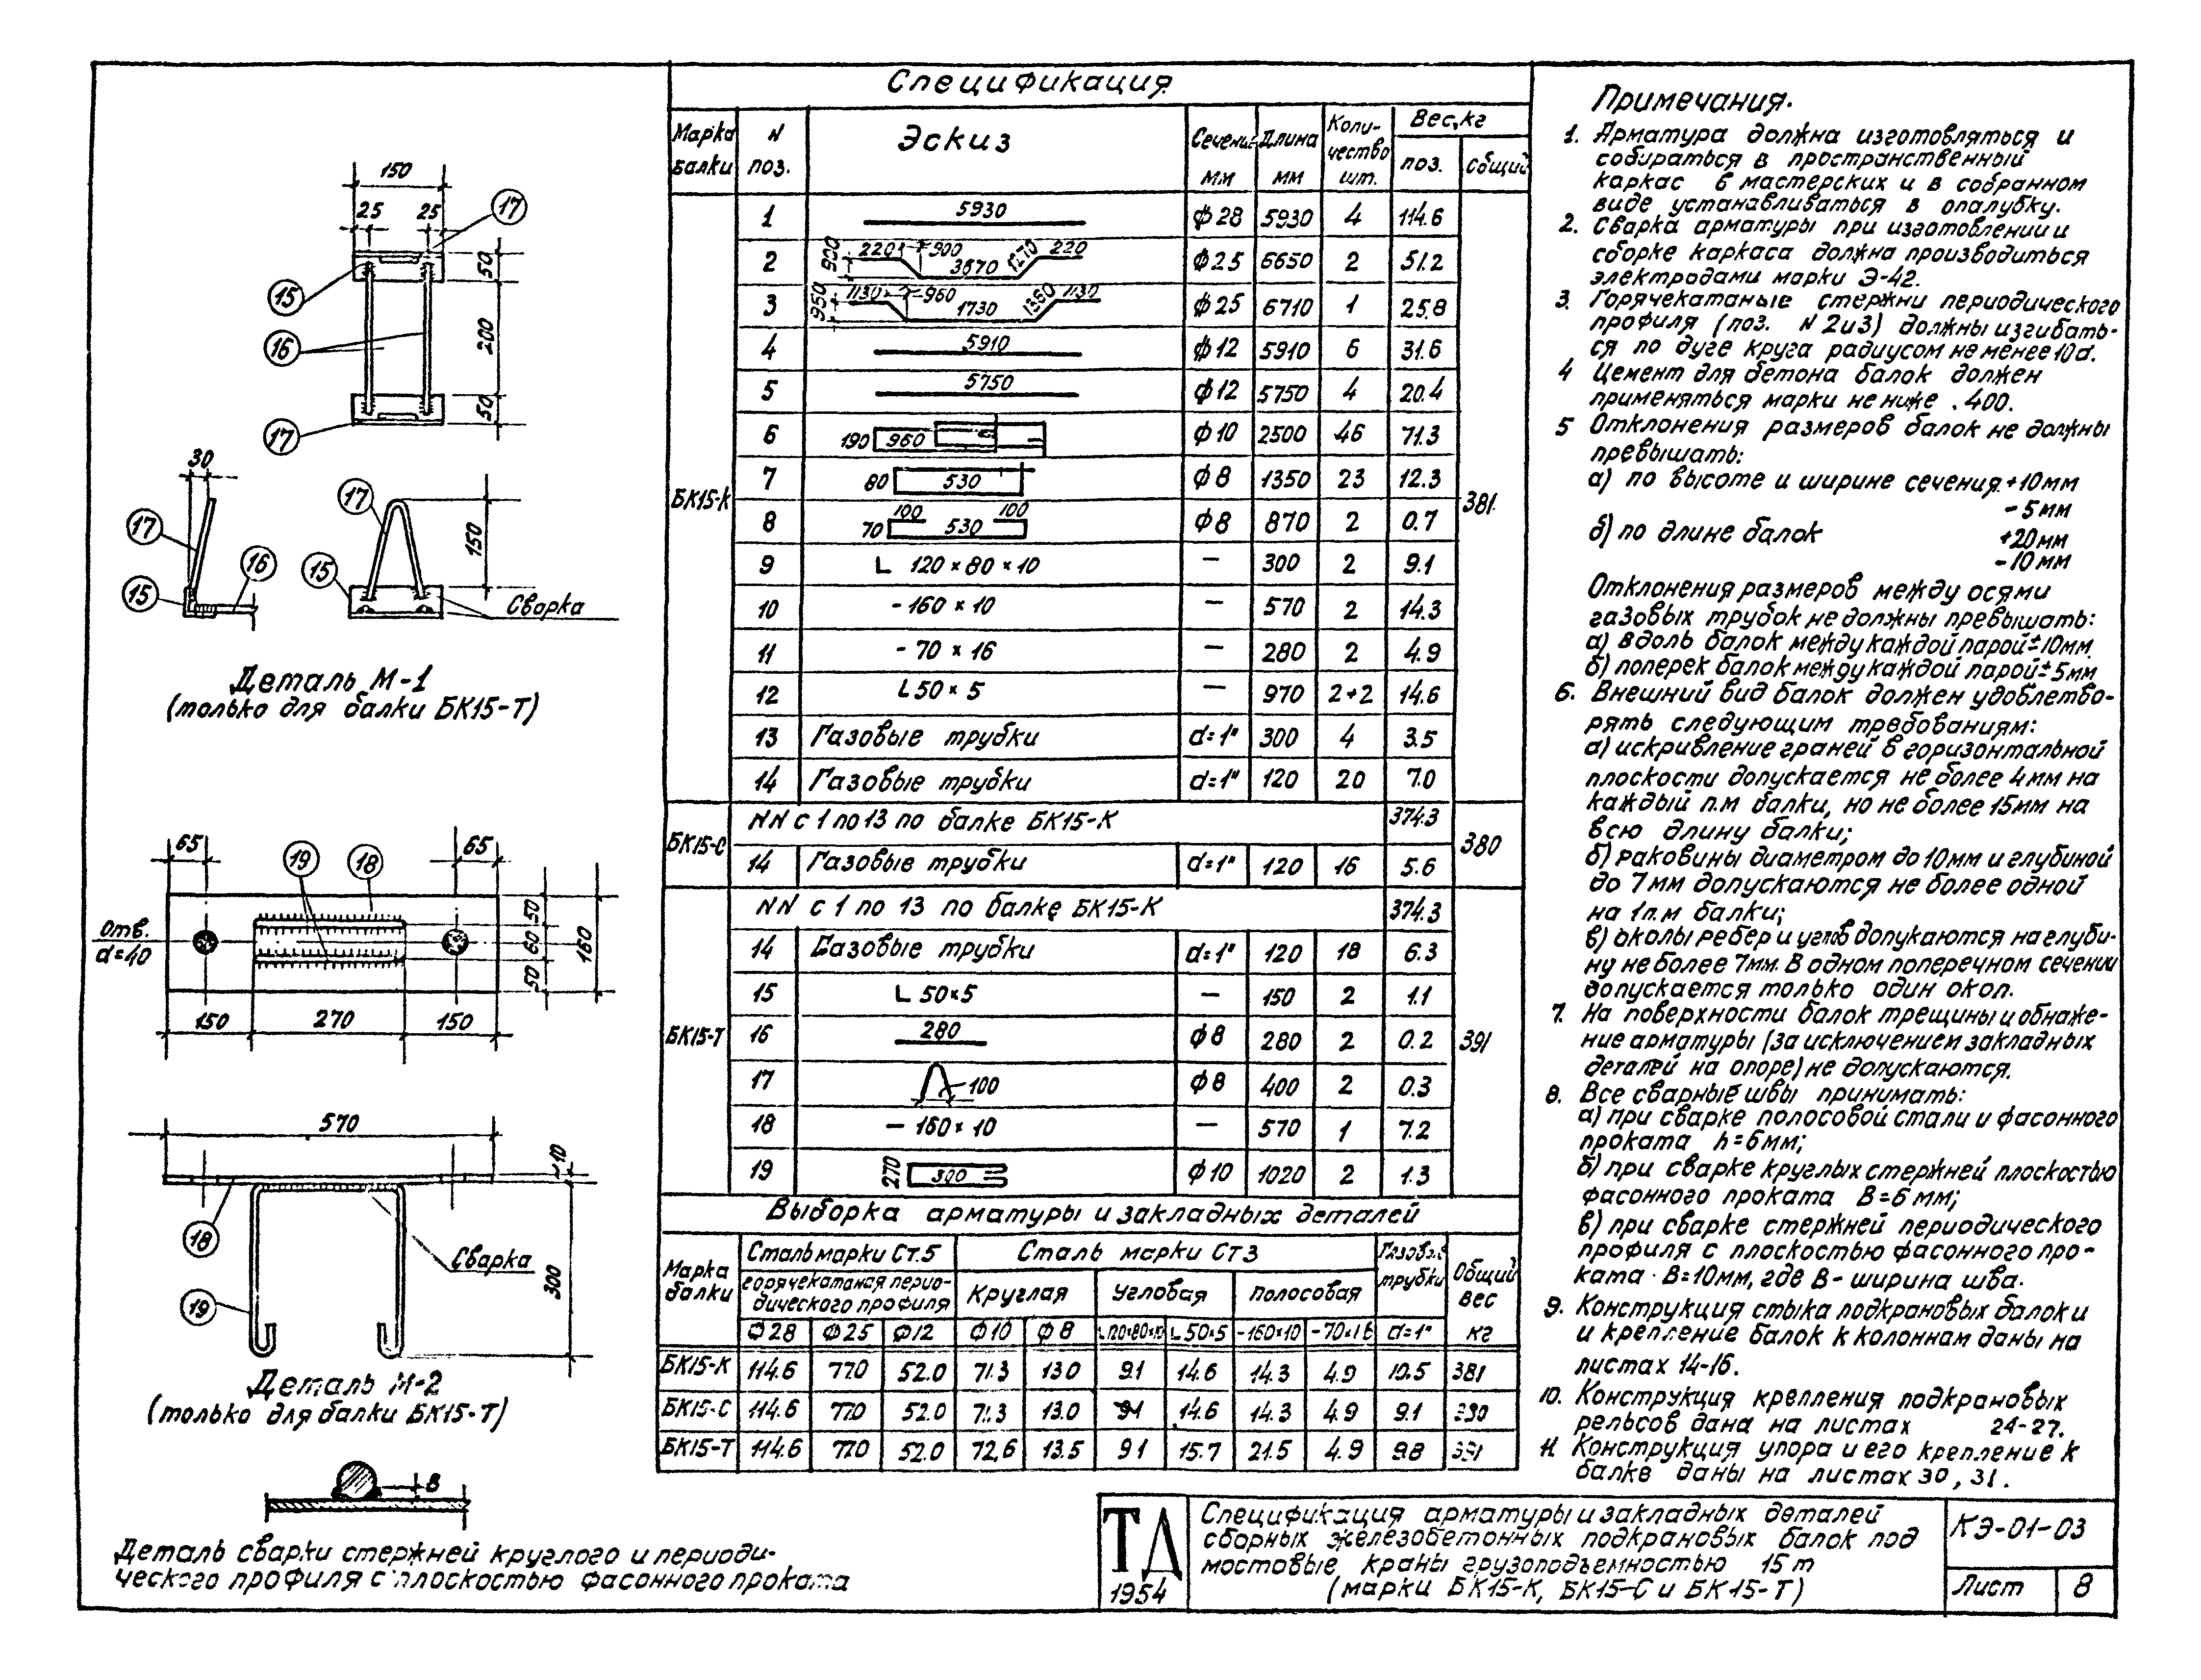 150
25
25
17
50
15
200
16
50
17
30
17
17
150
15
16
15
Сварка
Деталь М-1
(только для балки БК15-Т)
65
65
19
18
Отв.
d=40
50
60
50
160
150
270
150
570
10
18
Сварка
300
19
Деталь М-2
(только для балки БК15-Т)
В
Деталь сварки стержней круглого и периоди-
ческого профиля с плоскостью фасонного проката
Спецификация
Марка балки | N поз. | Эскиз | Сечение мм | Длина мм | Коли-чество шт. | Вес, кг поз. | общий
БК15-К
1 | 5930 | ф28 | 5930 | 4 | 114.6
2 | 900 2201 900 3870 1270 220 | ф25 | 6650 | 2 | 51.2
3 | 950 1130 960 1730 1360 1130 | ф25 | 6710 | 1 | 25.8
4 | 5910 | ф12 | 5910 | 6 | 31.6
5 | 5750 | ф12 | 5750 | 4 | 20.4
6 | 190 960 | ф10 | 2500 | 46 | 71.3
7 | 80 530 | ф8 | 1350 | 23 | 12.3
381
8 | 70 100 530 100 | ф8 | 870 | 2 | 0.7
9 | L 120×80×10 | — | 300 | 2 | 9.1
10 | -160×10 | — | 570 | 2 | 14.3
11 | -70×16 | — | 280 | 2 | 4.9
12 | L50×5 | — | 970 | 2+2 | 14.6
13 | Газовые трубки | d=1" | 300 | 4 | 3.5
14 | Газовые трубки | d=1" | 120 | 20 | 7.0
БК15-С
NN с 1 по 13 по балке БК15-К | 374.3
380
14 | Газовые трубки | d=1" | 120 | 16 | 5.6
NN с 1 по 13 по балке БК15-К | 374.3
14 | Газовые трубки | d=1" | 120 | 18 | 6.3
15 | L 50×5 | — | 150 | 2 | 1.1
БК15-Т
16 | 280 | ф8 | 280 | 2 | 0.2
391
17 | 100 | ф8 | 400 | 2 | 0.3
18 | —160×10 | — | 570 | 1 | 7.2
19 | 270 300 | ф10 | 1020 | 2 | 1.3
Выборка арматуры и закладных деталей
Марка балки | Сталь марки Ст.5 | Сталь марки Ст3 | Газовые трубки | Общий вес кг
горячекатаная перио-
дического профиля | Круглая | Угловая | Полосовая
ф28 | ф25 | ф12 | ф10 | ф8 | L120×80×10 | L50×5 | -160×10 | -70×16 | d=1"
БК15-К | 114.6 | 77.0 | 52.0 | 71.3 | 13.0 | 9.1 | 14.6 | 14.3 | 4.9 | 10.5 | 381
БК15-С | 114.6 | 77.0 | 52.0 | 71.3 | 13.0 | 9.1 | 14.6 | 14.3 | 4.9 | 9.1 | 380
БК15-Т | 114.6 | 77.0 | 52.0 | 72.6 | 13.5 | 9.1 | 15.7 | 21.5 | 4.9 | 9.8 | 391
Примечания.
1. Арматура должна изготовляться и
собираться в пространственный
каркас в мастерских и в собранном
виде устанавливаться в опалубку.
2. Сварка арматуры при изготовлении и
сборке каркаса должна производиться
электродами марки Э-42.
3. Горячекатаные стержни периодического
профиля (поз. N 2и3) должны изгибать-
ся по дуге круга радиусом не менее 10d.
4 Цемент для бетона балок должен
применяться марки не ниже .400.
5 Отклонения размеров балок не должны
превышать:
а) по высоте и ширине сечения. +10мм
-5мм
б) по длине балок +20мм
-10мм
Отклонения размеров между осями
газовых трубок не должны превышать:
а) вдоль балок между каждой парой ±10мм
б) поперек балок между каждой парой ±5мм
6. Внешний вид балок должен удовлетво-
рять следующим требованиям:
а) искривление граней в горизонтальной
плоскости допускается не более 4мм на
каждый п.м балки, но не более 15мм на
всю длину балки;
б) раковины диаметром до 10мм и глубиной
до 7мм допускаются не более одной
на 1п.м балки;
в) околы ребер и углов допукаются на глуби-
ну не более 7мм. В одном поперечном сечении
допускается только один окол.
7. На поверхности балок трещины и обнаже-
ние арматуры (за исключением закладных
деталей на опоре) не допускаются.
8. Все сварные швы принимать:
а) при сварке полосовой стали и фасонного
проката h=6мм;
б) при сварке круглых стержней плоскостью
фасонного проката В=6мм;
в) при сварке стержней периодического
профиля с плоскостью фасонного про-
ката В=10мм, где В- ширина шва.
9. Конструкция стыка подкрановых балок и
и крепление балок к колоннам даны на
листах 14-16.
10. Конструкция крепления подкрановых
рельсов дана на листах 24-27.
11 Конструкция упора и его крепление к
балке даны на листах 30, 31.
ТД
1954
Спецификация арматуры и закладных деталей
сборных железобетонных подкрановых балок под
мостовые краны грузоподъемностью 15т
(марки БК15-К, БК15-С и БК15-Т)
КЭ-01-03
Лист 8